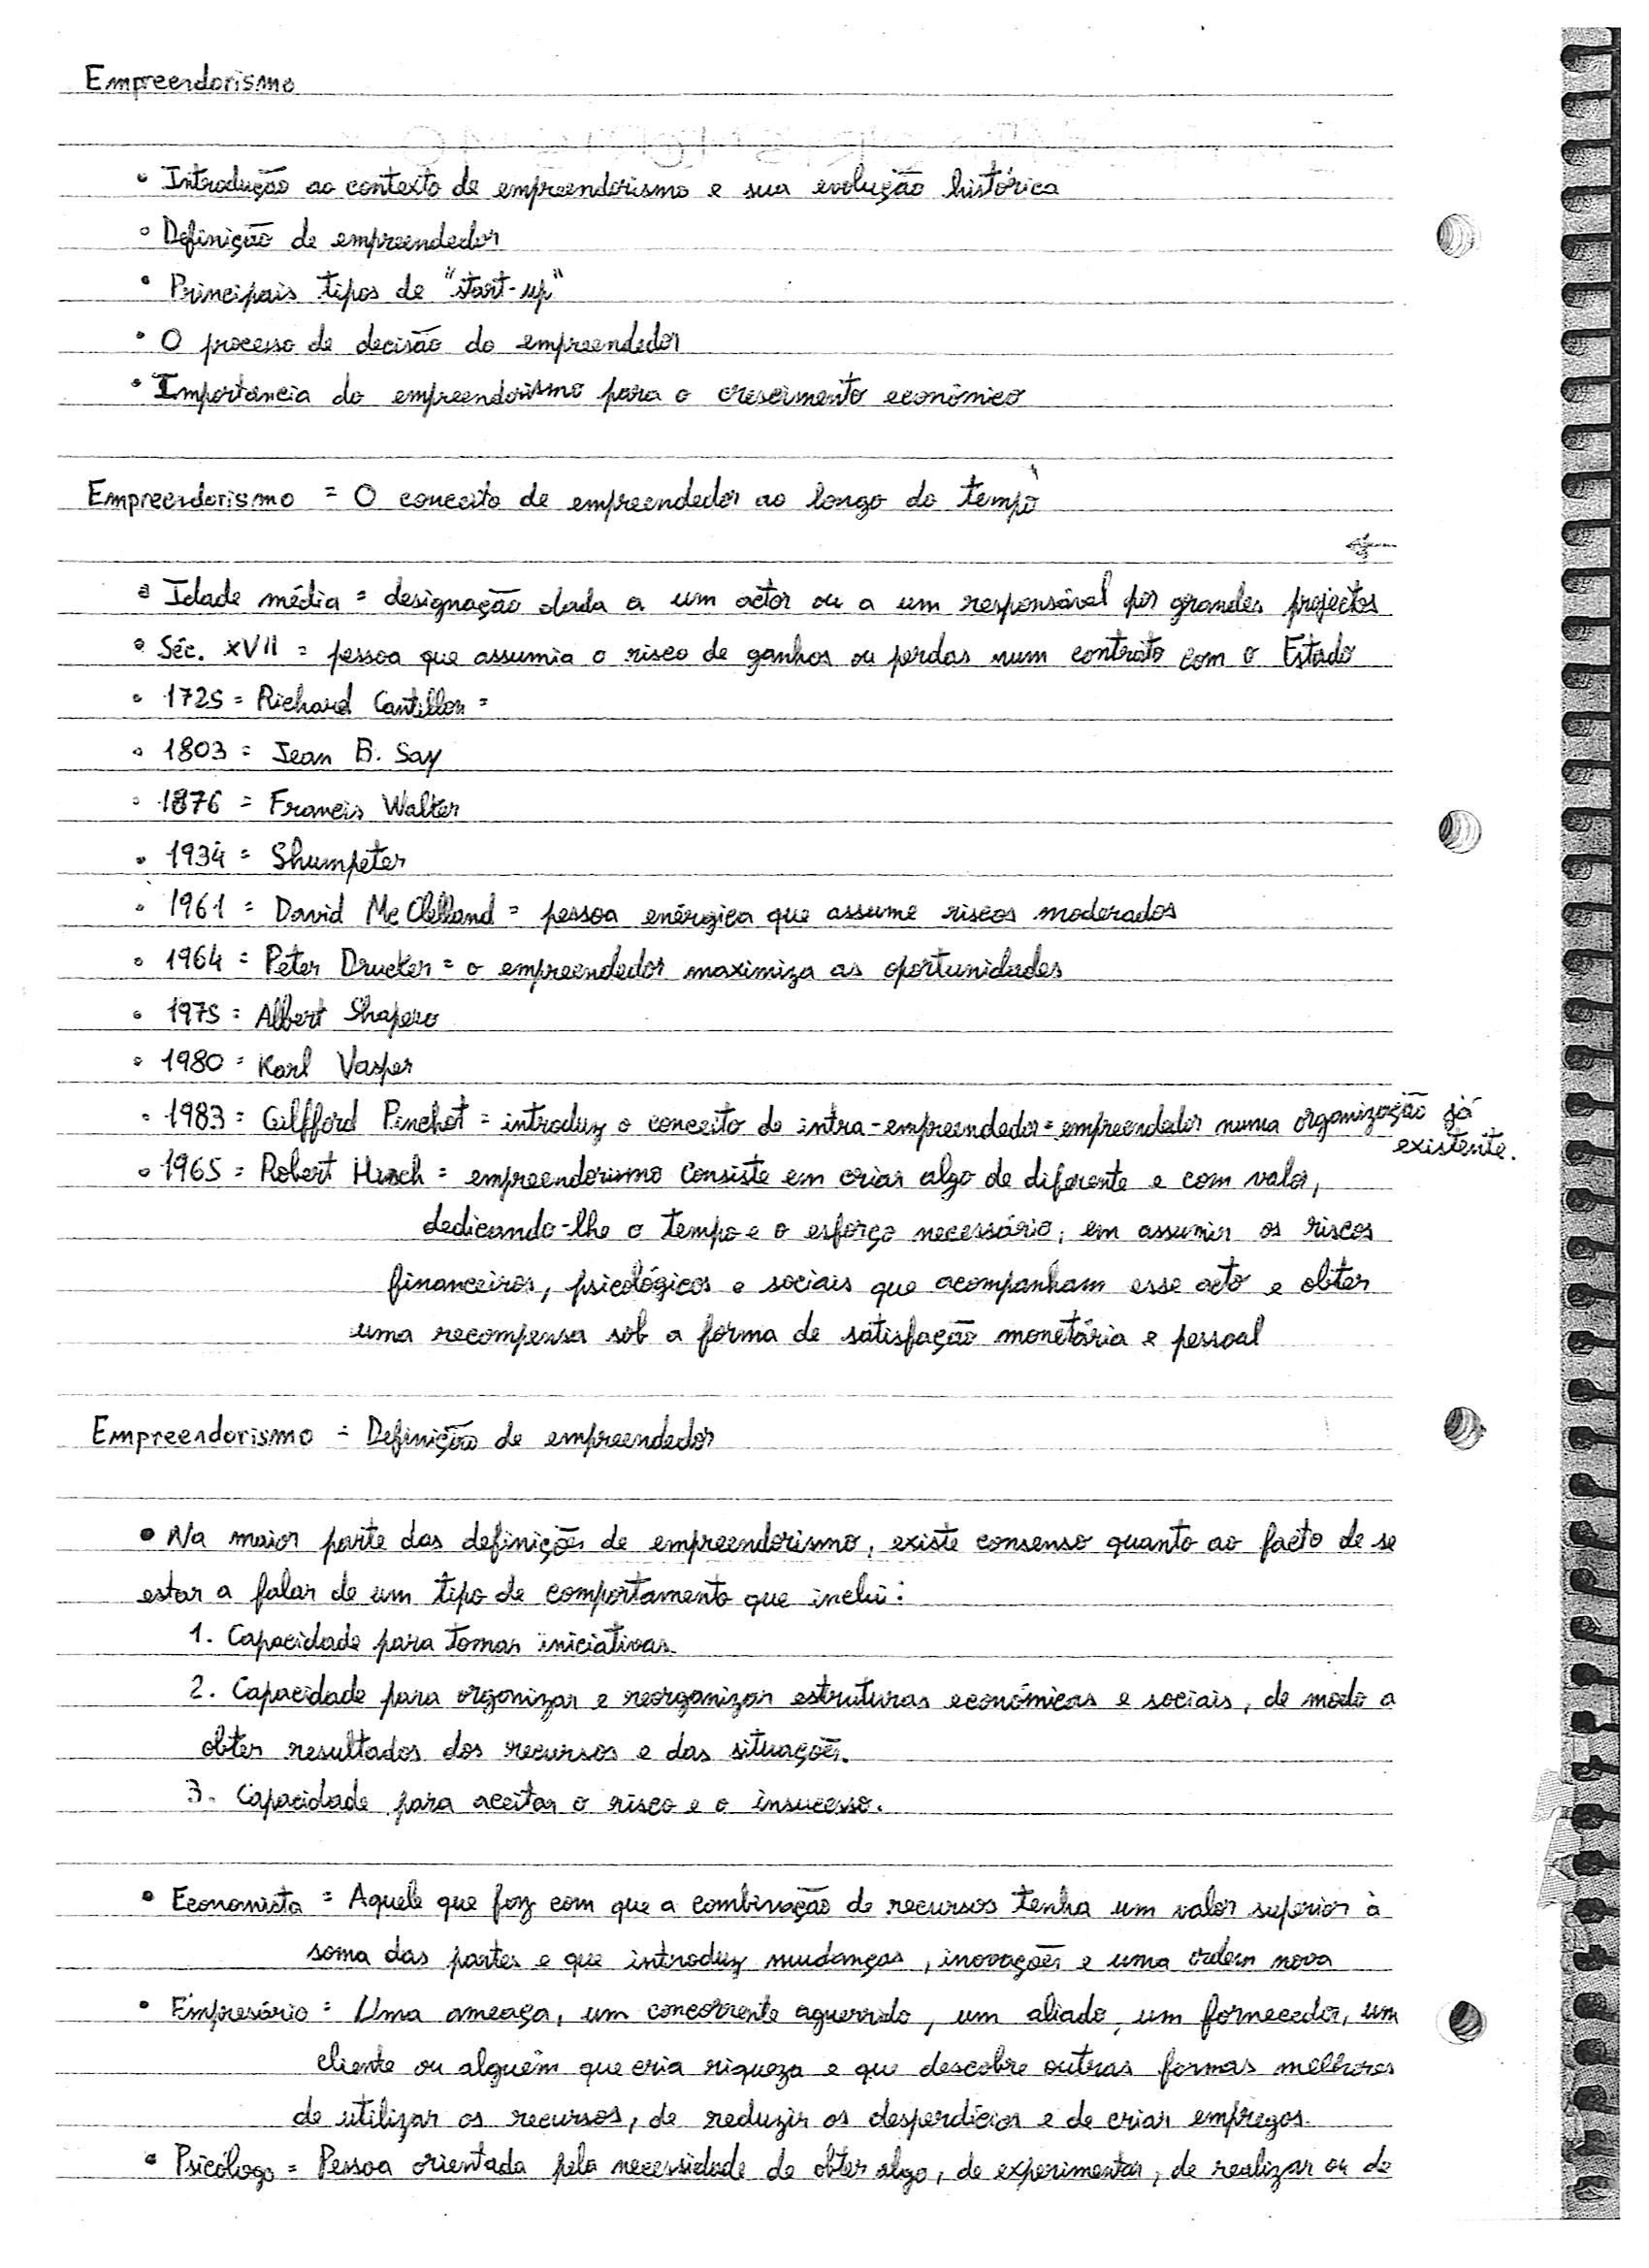 Empreendorismo
• Introdução ao contexto de empreendorismo e sua evolução histórica
• Definição de empreendedor
• Principais tipos de "start-up"
• O processo de decisão do empreendedor
• Importância do empreendorismo para o crescimento económico
Empreendorismo = O conceito de empreendedor ao longo do tempo
• Idade média = designação dada a um actor ou a um responsável por grandes projectos
• Séc. XVII = pessoa que assumia o risco de ganhos ou perdas num contrato com o Estado
• 1725 = Richard Cantillon =
• 1803 = Jean B. Say
• 1876 = Francis Walter
• 1934 = Shumpeter
• 1961 = David Mc Clelland = pessoa enérgica que assume riscos moderados
• 1964 = Peter Drucker = o empreendedor maximiza as oportunidades
• 1975 = Albert Shapero
• 1980 = Karl Vasper
• 1983 = Gilfford Pinchot = introduz o conceito de intra-empreendedor = empreendedor numa organização já
existente.
• 1965 = Robert Hisch = empreendorismo consiste em criar algo de diferente e com valor,
dedicando-lhe o tempo e o esforço necessário, em assumir os riscos
financeiros, psicológicos e sociais que acompanham esse acto e obter
uma recompensa sob a forma de satisfação monetária e pessoal
Empreendorismo = Definição de empreendedor
• Na maior parte das definições de empreendorismo, existe consenso quanto ao facto de se
estar a falar de um tipo de comportamento que inclui:
1. Capacidade para tomar iniciativas
2. Capacidade para organizar e reorganizar estruturas económicas e sociais, de modo a
obter resultados dos recursos e das situações.
3. Capacidade para aceitar o risco e o insucesso.
• Economista = Aquele que faz com que a combinação de recursos tenha um valor superior à
soma das partes e que introduz mudanças, inovações e uma ordem nova
• Empresário = Uma ameaça, um concorrente aguerrido, um aliado, um fornecedor, um
cliente ou alguém que cria riqueza e que descobre outras formas melhores
de utilizar os recursos, de reduzir os desperdícios e de criar empregos.
• Psicólogo = Pessoa orientada pela necessidade de obter algo, de experimentar, de realizar ou de